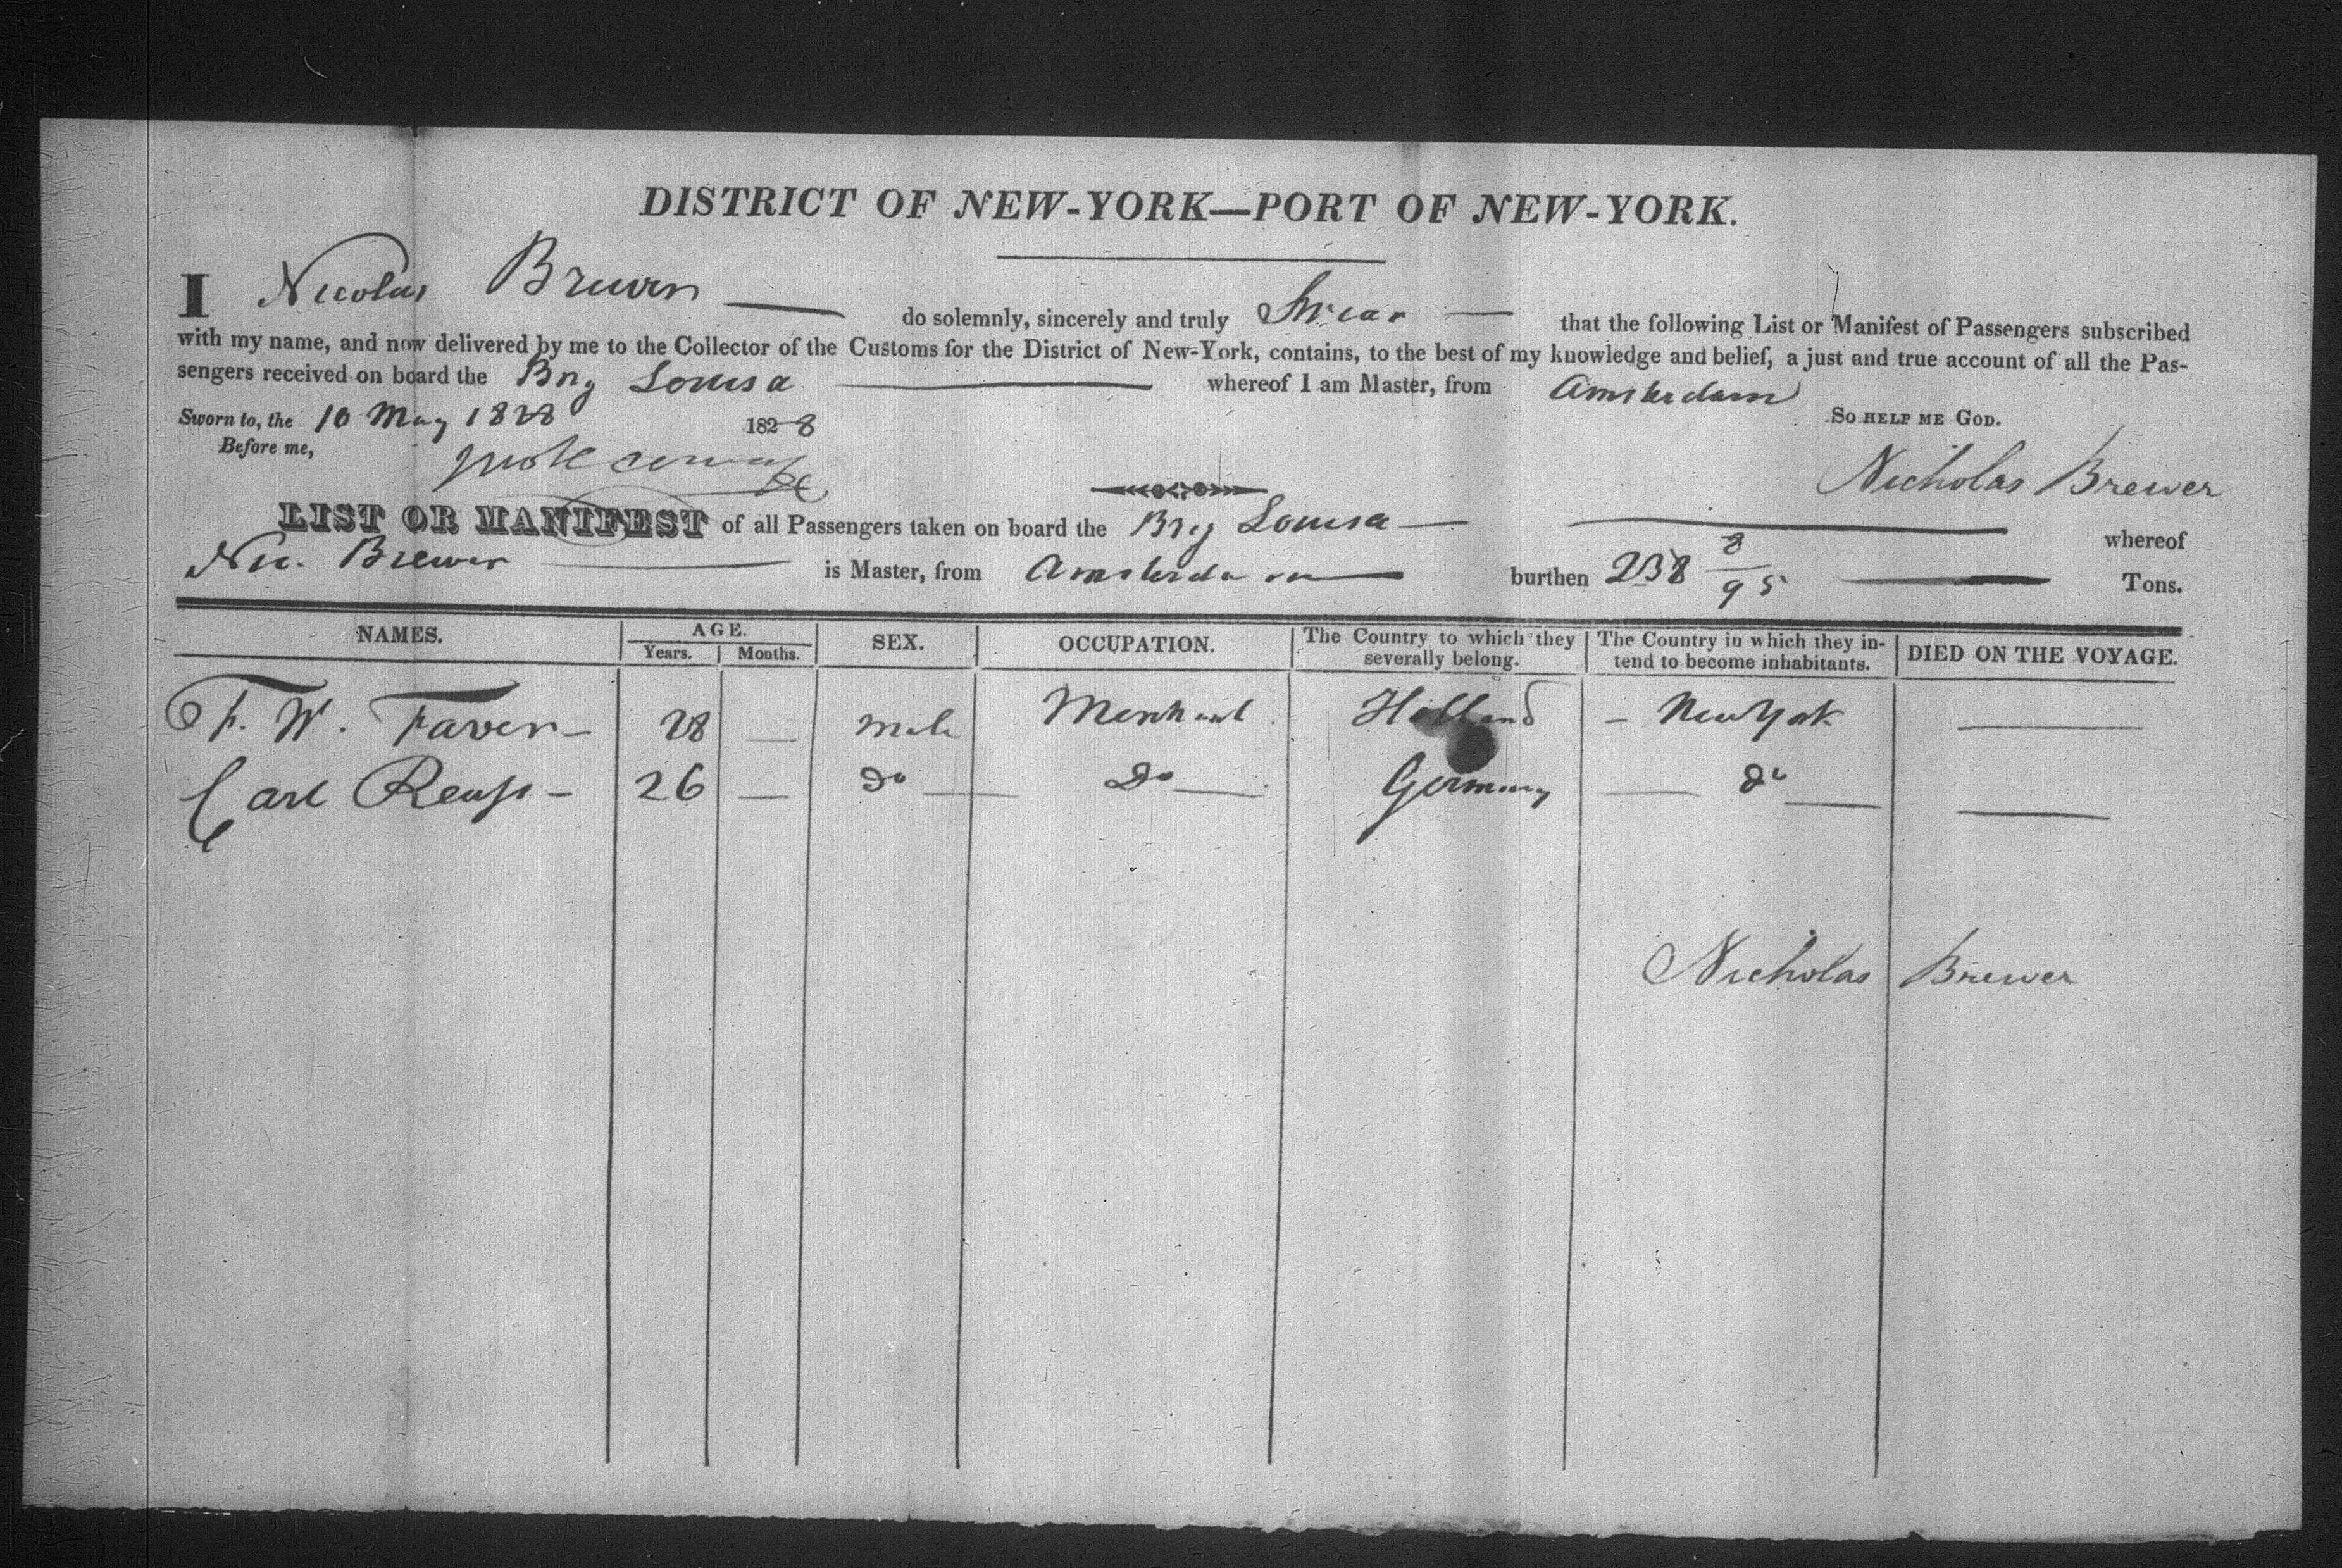 DISTRICT OF NEW-YORK—PORT OF NEW-YORK.
I Nicolas Brewer — do solemnly, sincerely and truly Swear — that the following List or Manifest of Passengers subscribed
with my name, and now delivered by me to the Collector of the Customs for the District of New-York, contains, to the best of my knowledge and belief, a just and true account of all the Pas-
sengers received on board the Brig Louisa — whereof I am Master, from Amsterdam
Sworn to, the 10 May 1828 1828 So HELP ME GOD.
Before me,
Nicholas Brewer
LIST OR MANIFEST of all Passengers taken on board the Brig Louisa — whereof
Nic. Brewer — is Master, from Amsterdam — burthen 238 8/95 — Tons.
NAMES. AGE. Years. Months. SEX. OCCUPATION. The Country to which they severally belong. The Country in which they in-tend to become inhabitants. DIED ON THE VOYAGE.
F. W. Faven — 28 — male Merchant Holland — New York —
Carl Reuss — 26 — Do — Do — Germany — Do — —
Nicholas Brewer